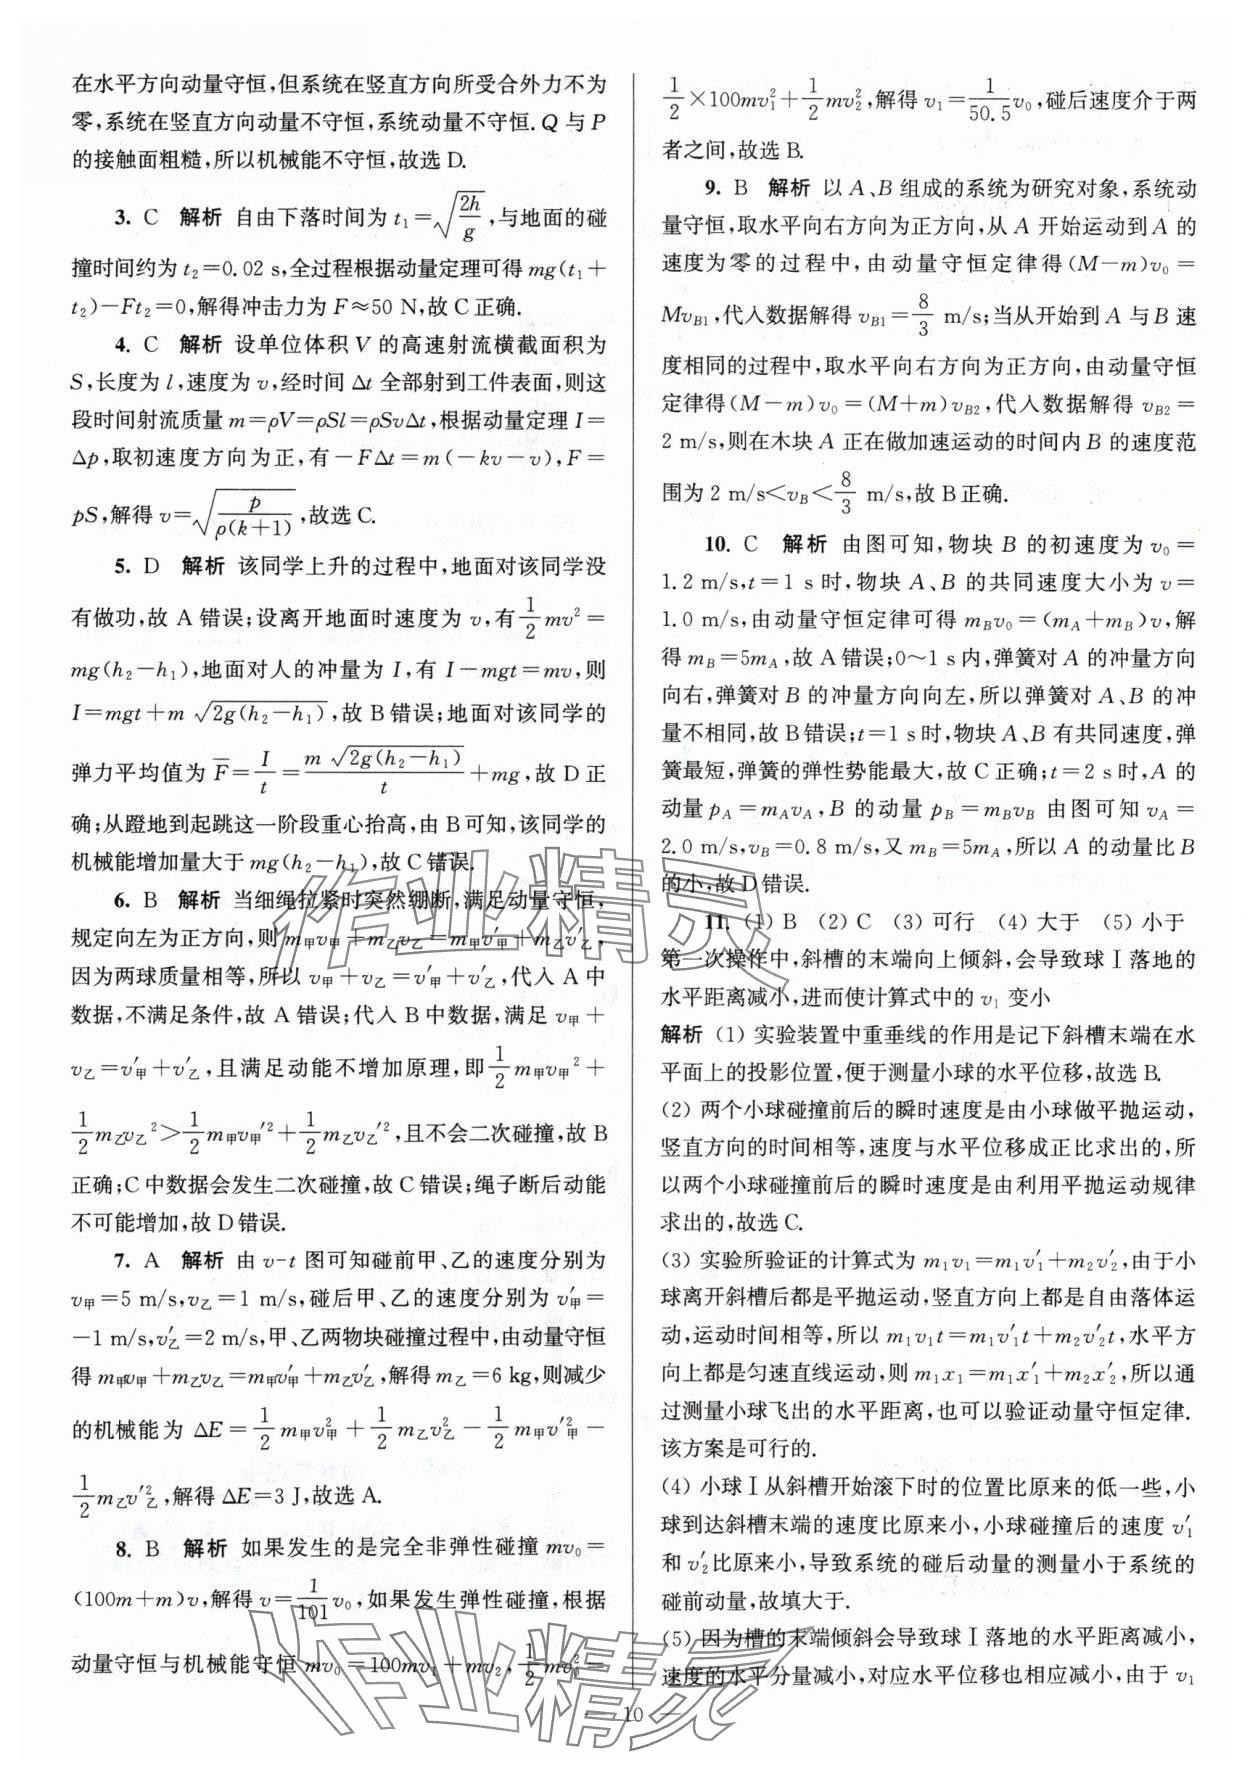 在水平方向动量守恒,但系统在竖直方向所受合外力不为
零,系统在竖直方向动量不守恒,系统动量不守恒. Q 与 P
的接触面粗糙,所以机械能不守恒,故选 D.
3. C 解析 自由下落时间为 t₁=√(2h/g),与地面的碰
撞时间约为 t₂=0.02 s,全过程根据动量定理可得 mg(t₁+
t₂)-Ft₂=0,解得冲击力为 F≈50 N,故 C 正确.
4. C 解析 设单位体积 V 的高速射流横截面积为
S,长度为 l,速度为 v,经时间 Δt 全部射到工件表面,则这
段时间射流质量 m=ρV=ρSl=ρSvΔt,根据动量定理 I=
Δp,取初速度方向为正,有-FΔt=m(-kv-v),F=
pS,解得 v=√(p/(ρ(k+1))),故选 C.
5. D 解析 该同学上升的过程中,地面对该同学没
有做功,故 A 错误;设离开地面时速度为 v,有 1/2 mv²=
mg(h₂-h₁),地面对人的冲量为 I,有 I-mgt=mv,则
I=mgt+m √(2g(h₂-h₁)),故 B 错误;地面对该同学的
弹力平均值为 F̅=I/t=m √(2g(h₂-h₁))/t+mg,故 D 正
确;从蹬地到起跳这一阶段重心抬高,由 B 可知,该同学的
机械能增加量大于 mg(h₂-h₁),故 C 错误.
6. B 解析 当细绳拉紧时突然绷断,满足动量守恒,
规定向左为正方向,则 m甲v甲+m乙v乙=m甲v′甲+m乙v′乙,
因为两球质量相等,所以 v甲+v乙=v′甲+v′乙,代入 A 中
数据,不满足条件,故 A 错误;代入 B 中数据,满足 v甲+
v乙=v′甲+v′乙,且满足动能不增加原理,即 1/2 m甲v甲²+
1/2 m乙v乙²>1/2 m甲v甲′²+1/2 m乙v乙′²,且不会二次碰撞,故 B
正确;C 中数据会发生二次碰撞,故 C 错误;绳子断后动能
不可能增加,故 D 错误.
7. A 解析 由 v-t 图可知碰前甲、乙的速度分别为
v甲=5 m/s,v乙=1 m/s,碰后甲、乙的速度分别为 v′甲=
-1 m/s,v′乙=2 m/s,甲、乙两物块碰撞过程中,由动量守恒
得 m甲v甲+m乙v乙=m甲v′甲+m乙v′乙,解得 m乙=6 kg,则减少
的机械能为 ΔE=1/2 m甲v甲²+1/2 m乙v乙²-1/2 m甲v′甲²-
1/2 m乙v′乙²,解得 ΔE=3 J,故选 A.
8. B 解析 如果发生的是完全非弹性碰撞 mv₀=
(100m+m)v,解得 v=1/101 v₀,如果发生弹性碰撞,根据
动量守恒与机械能守恒 mv₀=100mv₁+mv₂,1/2 mv₀²=
1/2×100mv₁²+1/2 mv₂²,解得 v₁=1/50.5 v₀,碰后速度介于两
者之间,故选 B.
9. B 解析 以 A、B 组成的系统为研究对象,系统动
量守恒,取水平向右方向为正方向,从 A 开始运动到 A 的
速度为零的过程中,由动量守恒定律得(M-m)v₀=
Mv_B1,代入数据解得 v_B1=8/3 m/s;当从开始到 A 与 B 速
度相同的过程中,取水平向右方向为正方向,由动量守恒
定律得(M-m)v₀=(M+m)v_B2,代入数据解得 v_B2=
2 m/s,则在木块 A 正在做加速运动的时间内 B 的速度范
围为 2 m/s<v_B<8/3 m/s,故 B 正确.
10. C 解析 由图可知,物块 B 的初速度为 v₀=
1.2 m/s,t=1 s 时,物块 A、B 的共同速度大小为 v=
1.0 m/s,由动量守恒定律可得 m_Bv₀=(m_A+m_B)v,解
得 m_B=5m_A,故 A 错误;0~1 s 内,弹簧对 A 的冲量方向
向右,弹簧对 B 的冲量方向向左,所以弹簧对 A、B 的冲
量不相同,故 B 错误;t=1 s 时,物块 A、B 有共同速度,弹
簧最短,弹簧的弹性势能最大,故 C 正确;t=2 s 时,A 的
动量 p_A=m_Av_A,B 的动量 p_B=m_Bv_B 由图可知 v_A=
2.0 m/s,v_B=0.8 m/s,又 m_B=5m_A,所以 A 的动量比 B
的小,故 D 错误.
11. (1) B (2) C (3) 可行 (4) 大于 (5) 小于
第一次操作中,斜槽的末端向上倾斜,会导致球Ⅰ落地的
水平距离减小,进而使计算式中的 v₁ 变小
解析 (1) 实验装置中重垂线的作用是记下斜槽末端在水
平面上的投影位置,便于测量小球的水平位移,故选 B.
(2) 两个小球碰撞前后的瞬时速度是由小球做平抛运动,
竖直方向的时间相等,速度与水平位移成正比求出的,所
以两个小球碰撞前后的瞬时速度是由利用平抛运动规律
求出的,故选 C.
(3) 实验所验证的计算式为 m₁v₁=m₁v′₁+m₂v′₂,由于小
球离开斜槽后都是平抛运动,竖直方向上都是自由落体运
动,运动时间相等,所以 m₁v₁t=m₁v′₁t+m₂v′₂t,水平方
向上都是匀速直线运动,则 m₁x₁=m₁x′₁+m₂x′₂,所以通
过测量小球飞出的水平距离,也可以验证动量守恒定律.
该方案是可行的.
(4) 小球Ⅰ从斜槽开始滚下时的位置比原来的低一些,小
球到达斜槽末端的速度比原来小,小球碰撞后的速度 v′₁
和 v′₂比原来小,导致系统的碰后动量的测量小于系统的
碰前动量,故填大于.
(5) 因为槽的末端倾斜会导致球Ⅰ落地的水平距离减小,
速度的水平分量减小,对应水平位移也相应减小,由于 v₁
— 10 —
作业精灵
作业精灵